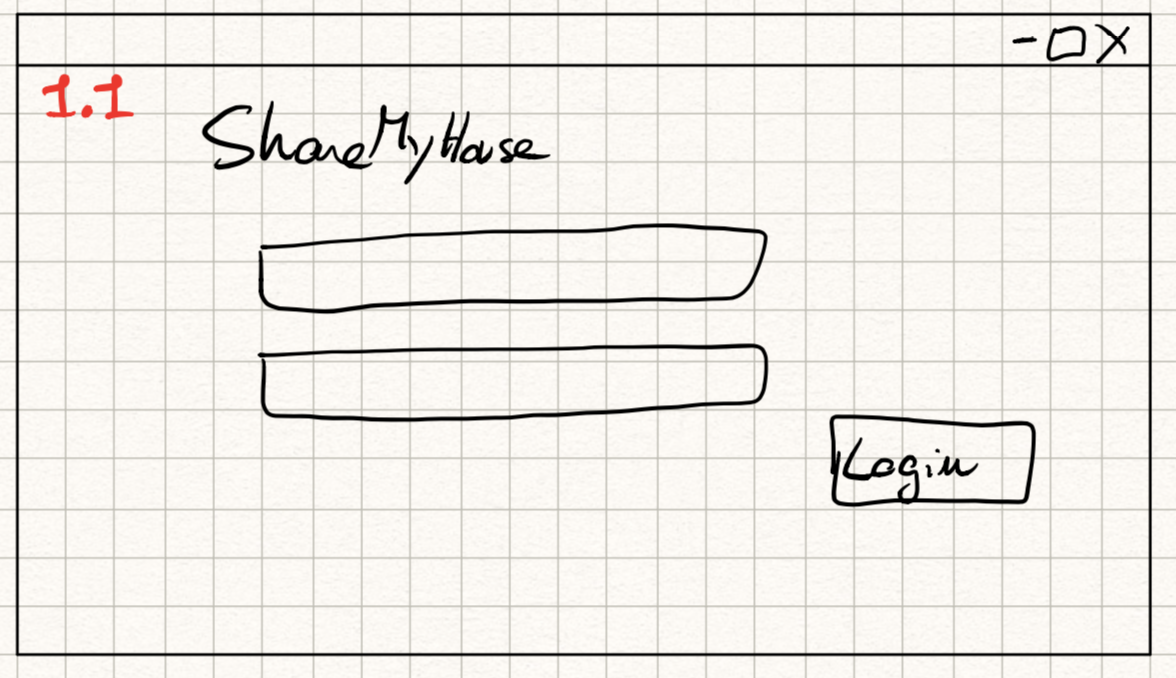 - □ X
1.1
ShareMyHouse
Login